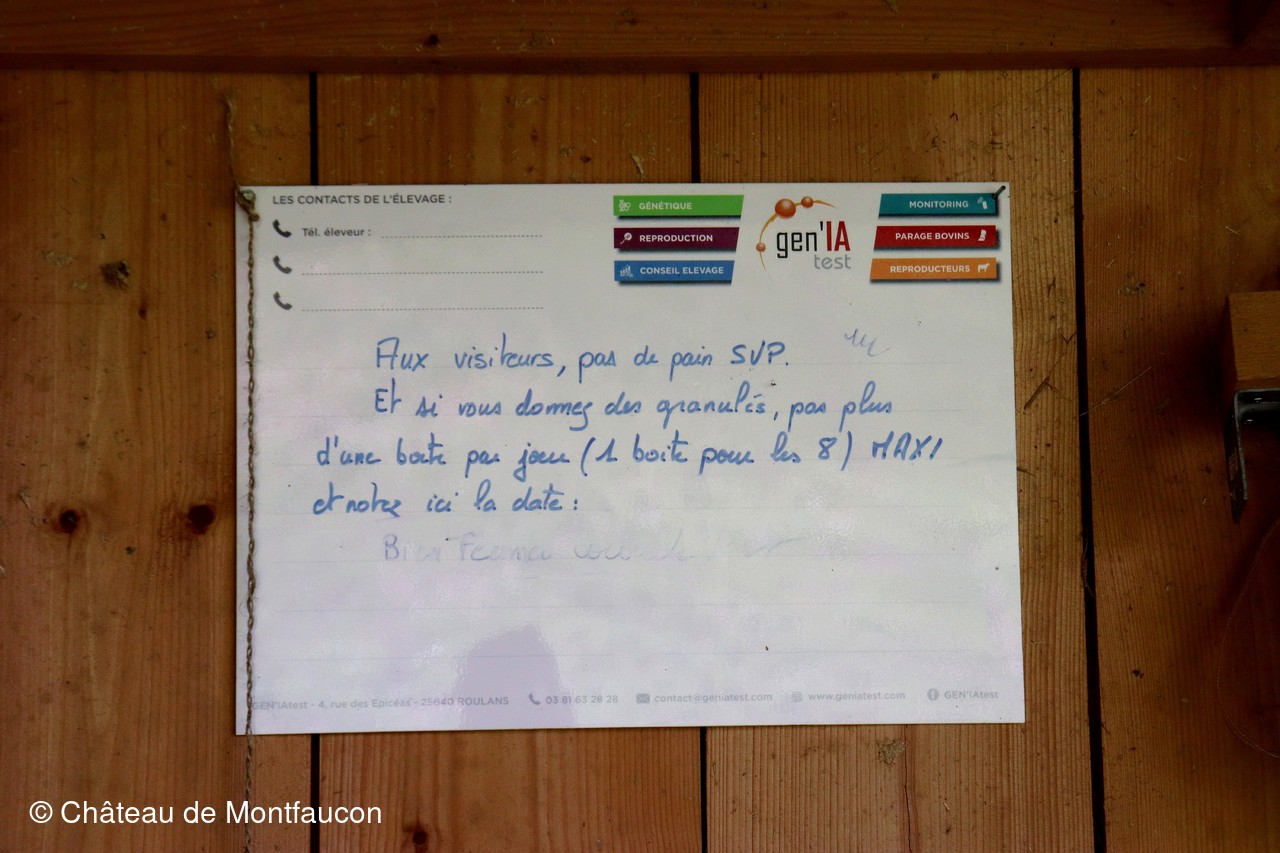 LES CONTACTS DE L'ÉLEVAGE :
Tél. éleveur :
GÉNÉTIQUE
REPRODUCTION
CONSEIL ELEVAGE
gen'IA
test
MONITORING
PARAGE BOVINS
REPRODUCTEURS
Aux visiteurs, pas de pain SVP.
Et si vous donnez des granulés, pas plus
d'une boite par jour (1 boite pour les 8) MAXI
et notez ici la date :
Bien
GEN'IAtest - 4, rue des Epicéas - 25640 ROULANS 03 81 63 28 28 contact@geniatest.com www.geniatest.com GEN'IAtest
© Château de Montfaucon